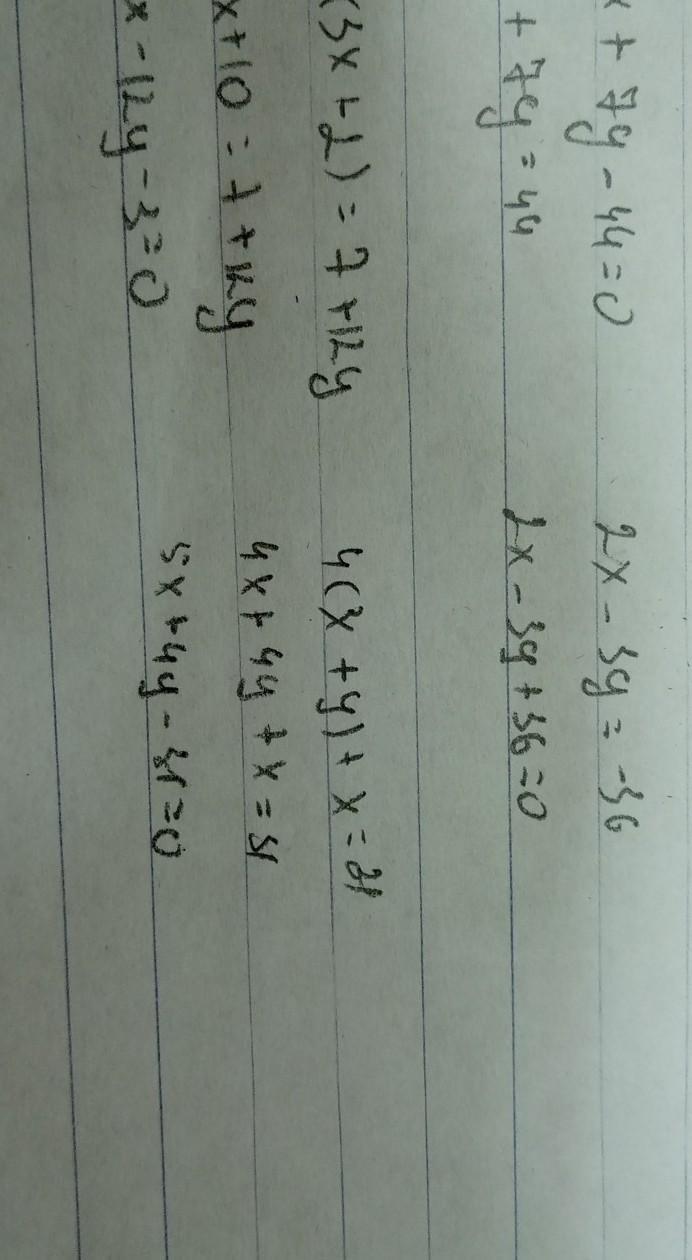 x + 7y - 44 = 0 2x - 3y = -36
+ 7y = 44 2x - 3y + 36 = 0
(3x + 2) = 7 + 12y 4(x + y) + x = 31
x + 10 = 7 + 12y 4x + 4y + x = 31
x - 12y - 3 = 0 5x + 4y - 31 = 0